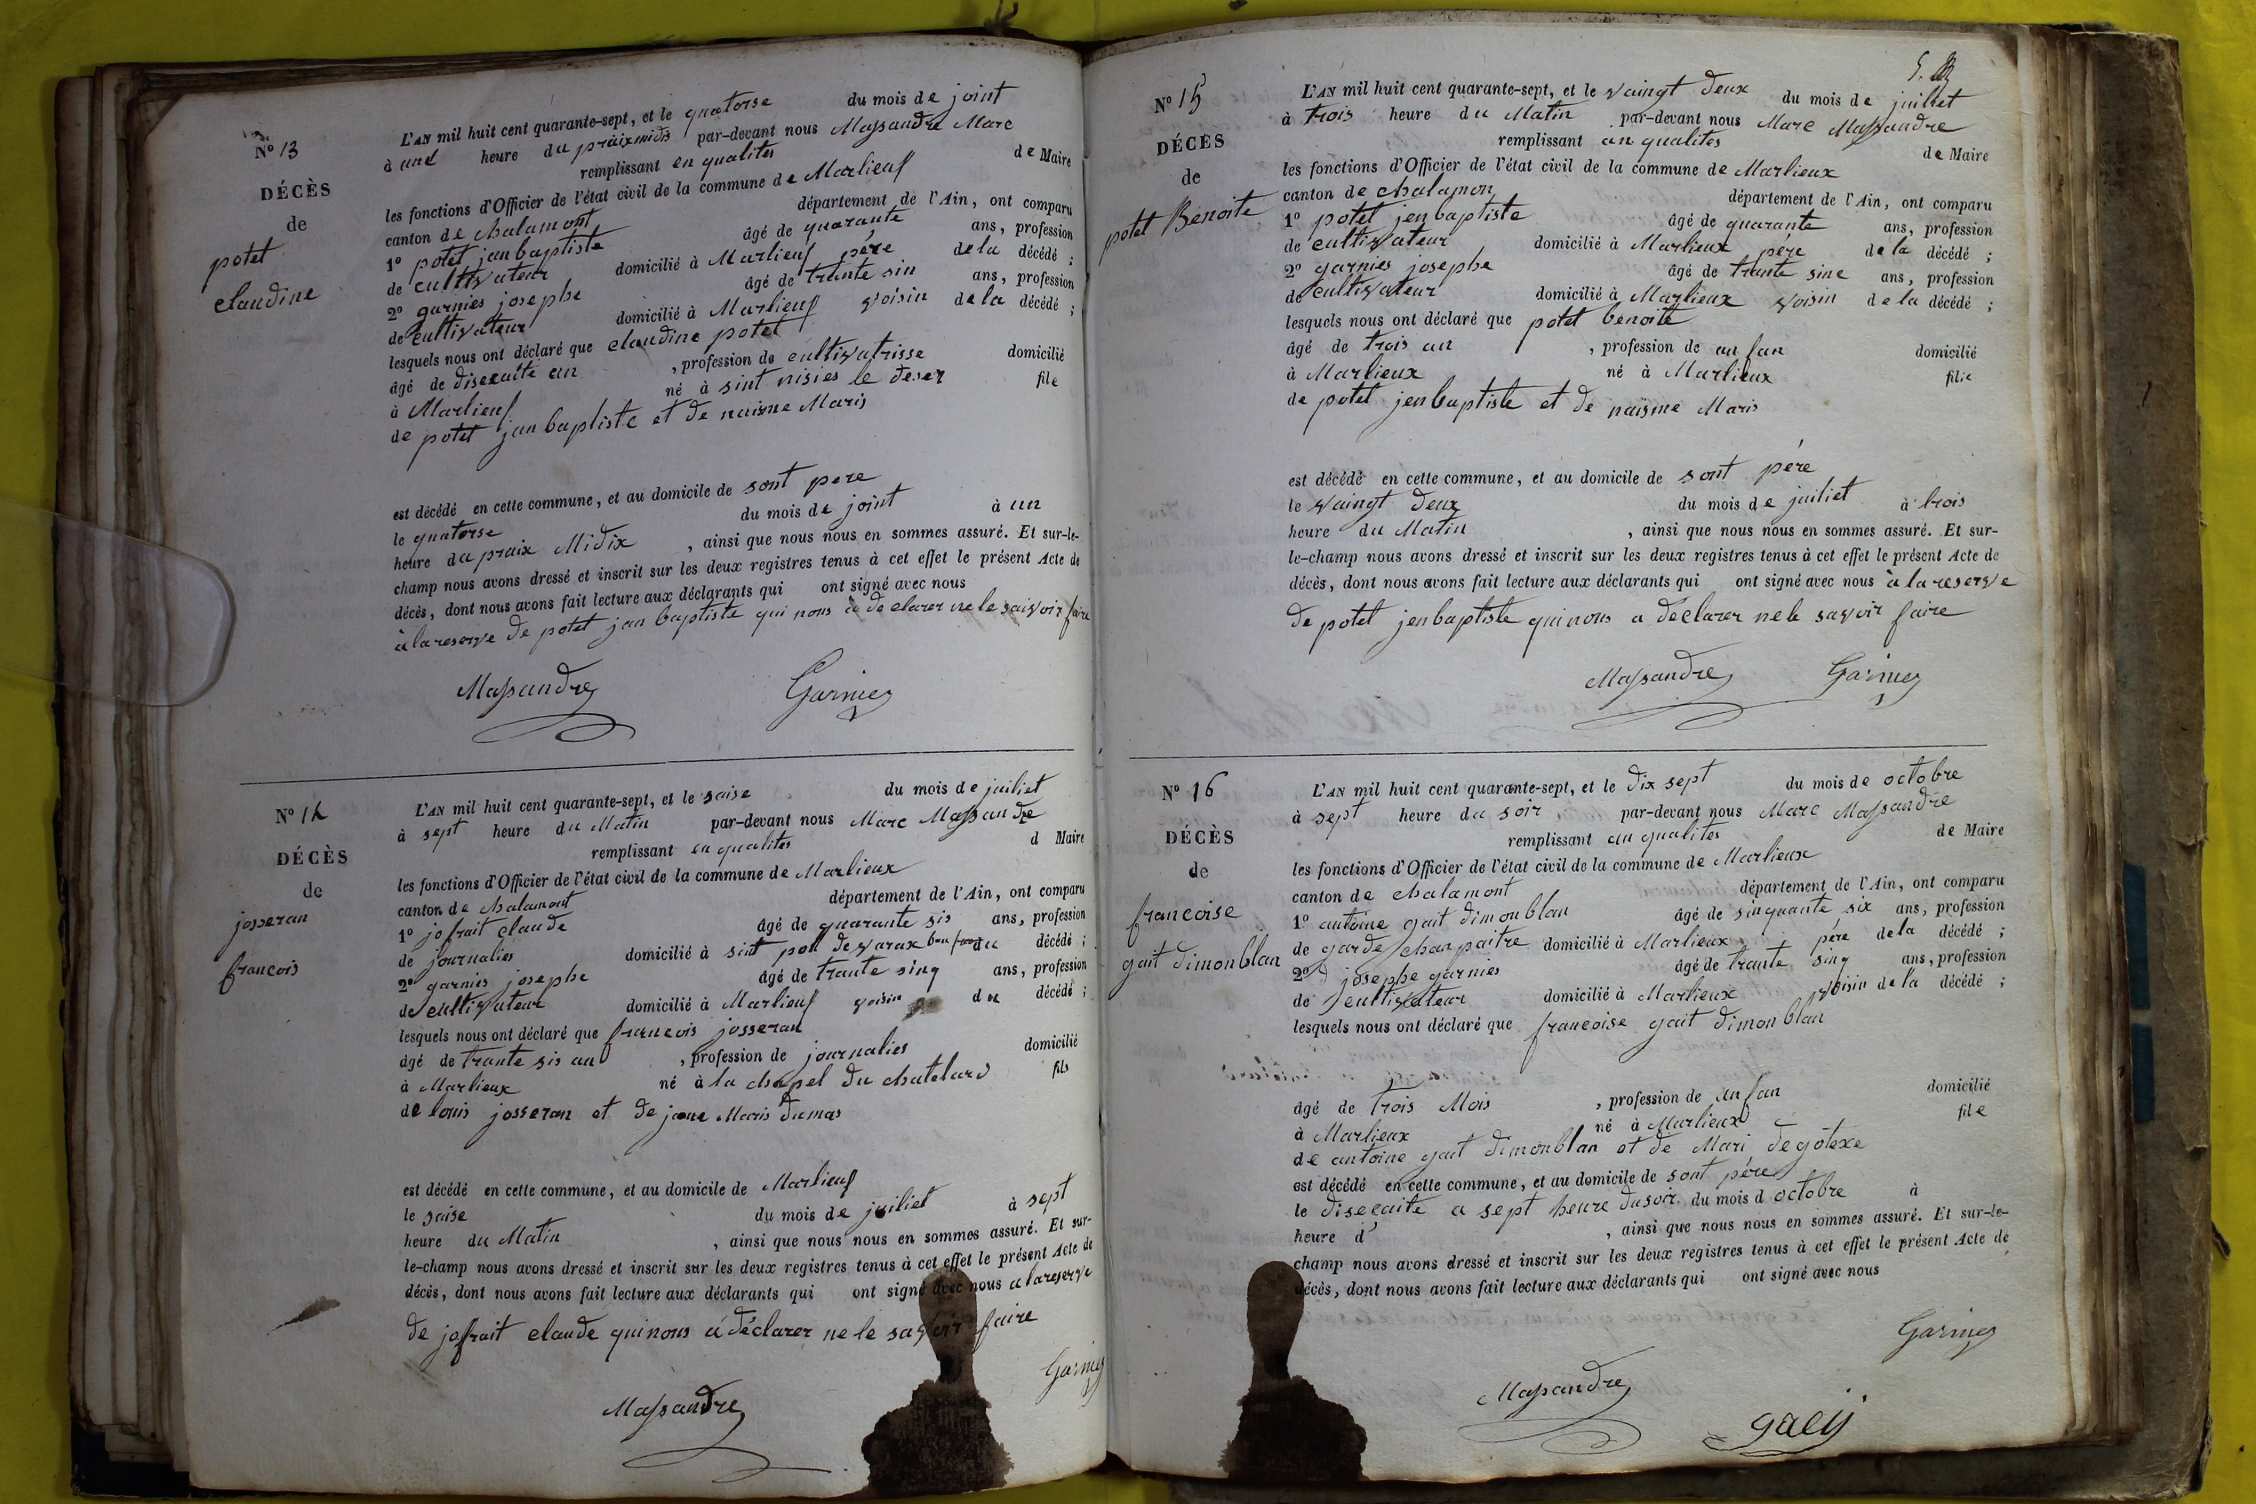 N° 13
DÉCÈS
de
potet
claudine
L'AN mil huit cent quarante-sept, et le quatorse du mois de joint
à une heure du praixmidis par-devant nous Massandre Marc
remplissant en qualites de Maire
les fonctions d'Officier de l'état civil de la commune de Marlieux
canton de chalamont département de l'Ain, ont comparu
1° potet jan baptiste âgé de quarante ans, profession
de cultivateur domicilié à Marlieux pére de la décédé ;
2° garnies josephe âgé de trante sin ans, profession
de cultivateur domicilié à Marlieux voisin de la décédé ;
lesquels nous ont déclaré que claudine potet
âgé de diseuite an , profession de cultivatrisse domicilié
à Marlieux né à sint nisies le deser file
de potet jan baptiste et de naisme Maris
est décédé en cette commune, et au domicile de sont pere
le quatorse du mois de joint à un
heure du praix Midix , ainsi que nous nous en sommes assuré. Et sur-le-
champ nous avons dressé et inscrit sur les deux registres tenus à cet effet le présent Acte de
décès, dont nous avons fait lecture aux déclarants qui ont signé avec nous
à la reserve de potet jan baptiste qui nous a declarer ne le saivoir faire
Massandre Garnier
N° 14
DÉCÈS
de
josseran
francois
L'AN mil huit cent quarante-sept, et le saise du mois de juiliet
à sept heure du Matin par-devant nous Marc Massandre
remplissant en qualites d Maire
les fonctions d'Officier de l'état civil de la commune de Marlieux
canton de chalamont département de l'Ain, ont comparu
1° jofrait claude âgé de quarante sis ans, profession
de journalies domicilié à sint pol de varax bau frere du décédé ;
2° garnies josephe âgé de trante sinq ans, profession
de cultivateur domicilié à Marlieux voisin du décédé ;
lesquels nous ont déclaré que francois josseran
âgé de trante sis an , profession de journalies domicilié
à Marlieux né à la chapel du chatelard fils
de louis josseran et de jane Maris dumas
est décédé en cette commune, et au domicile de Marlieux
le saise du mois de juiliet à sept
heure du Matin , ainsi que nous nous en sommes assuré. Et sur-
le-champ nous avons dressé et inscrit sur les deux registres tenus à cet effet le présent Acte de
décès, dont nous avons fait lecture aux déclarants qui ont signé avec nous a la reserve
de jofrait claude qui nous a déclarer ne le savoir faire
Garnier
Massandre
5.
N° 15
DÉCÈS
de
potet Benoite
L'AN mil huit cent quarante-sept, et le vaingt deux du mois de juillet
à trois heure du Matin par-devant nous Marc Massandre
remplissant an qualites de Maire
les fonctions d'Officier de l'état civil de la commune de Marlieux
canton de chalamon département de l'Ain, ont comparu
1° potet jen baptiste âgé de quarante ans, profession
de cultivateur domicilié à Marlieux pére de la décédé ;
2° garnies josephe âgé de trante sine ans, profession
de cultivateur domicilié à Marlieux voisin de la décédé ;
lesquels nous ont déclaré que potet benoite
âgé de trois an , profession de an fan domicilié
à Marlieux né à Marlieux filie
de potet jen baptiste et de naisme Maris
est décédé en cette commune, et au domicile de sont pére
le vaingt deux du mois de juiliet à trois
heure du Matin , ainsi que nous nous en sommes assuré. Et sur-
le-champ nous avons dressé et inscrit sur les deux registres tenus à cet effet le présent Acte de
décès, dont nous avons fait lecture aux déclarants qui ont signé avec nous à la reserve
de potet jen baptiste qui nous a declarer ne le savoir faire
Massandre Garnier
N° 16
DÉCÈS
de
francoise
gait dimonblan
L'AN mil huit cent quarante-sept, et le dix sept du mois de octobre
à sept heure du soir par-devant nous Marc Massandre
remplissant an qualites de Maire
les fonctions d'Officier de l'état civil de la commune de Marlieux
canton de chalamont département de l'Ain, ont comparu
1° antoine gait dimonblan âgé de sinquante six ans, profession
de garde chanpaitre domicilié à Marlieux pére de la décédé ;
2° josephe garnies âgé de trante sinq ans, profession
de cultivateur domicilié à Marlieux voisin de la décédé ;
lesquels nous ont déclaré que francoise gait dimonblan
âgé de trois Mois , profession de an fan domicilié
à Marlieux né à Marlieux file
de antoine gait dimonblan et de Mari degotexe
est décédé en cette commune, et au domicile de sont pére
le diseaite a sept heure du soir du mois d octobre à
heure d , ainsi que nous nous en sommes assuré. Et sur-le-
champ nous avons dressé et inscrit sur les deux registres tenus à cet effet le présent Acte de
décès, dont nous avons fait lecture aux déclarants qui ont signé avec nous
Garnier
Massandre